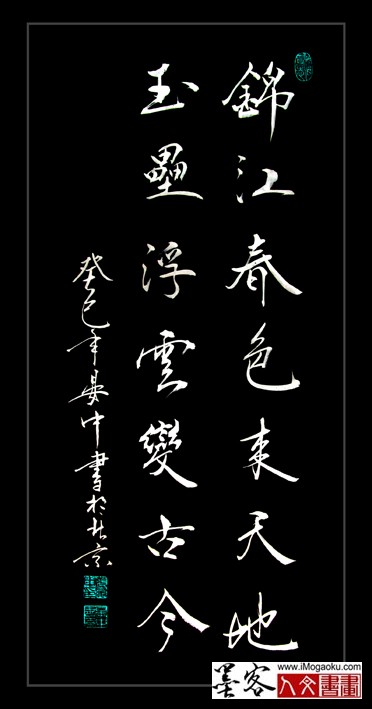 錦江春色来天地
玉壘浮雲變古今
癸巳年晏中書於北京
墨客
www.iMogaoku.com
人文書畫